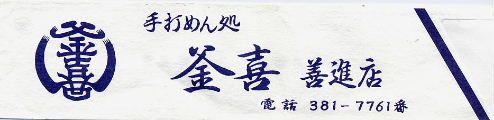 釜喜
手打めん処
釜喜 善進店
電話 381-7761番